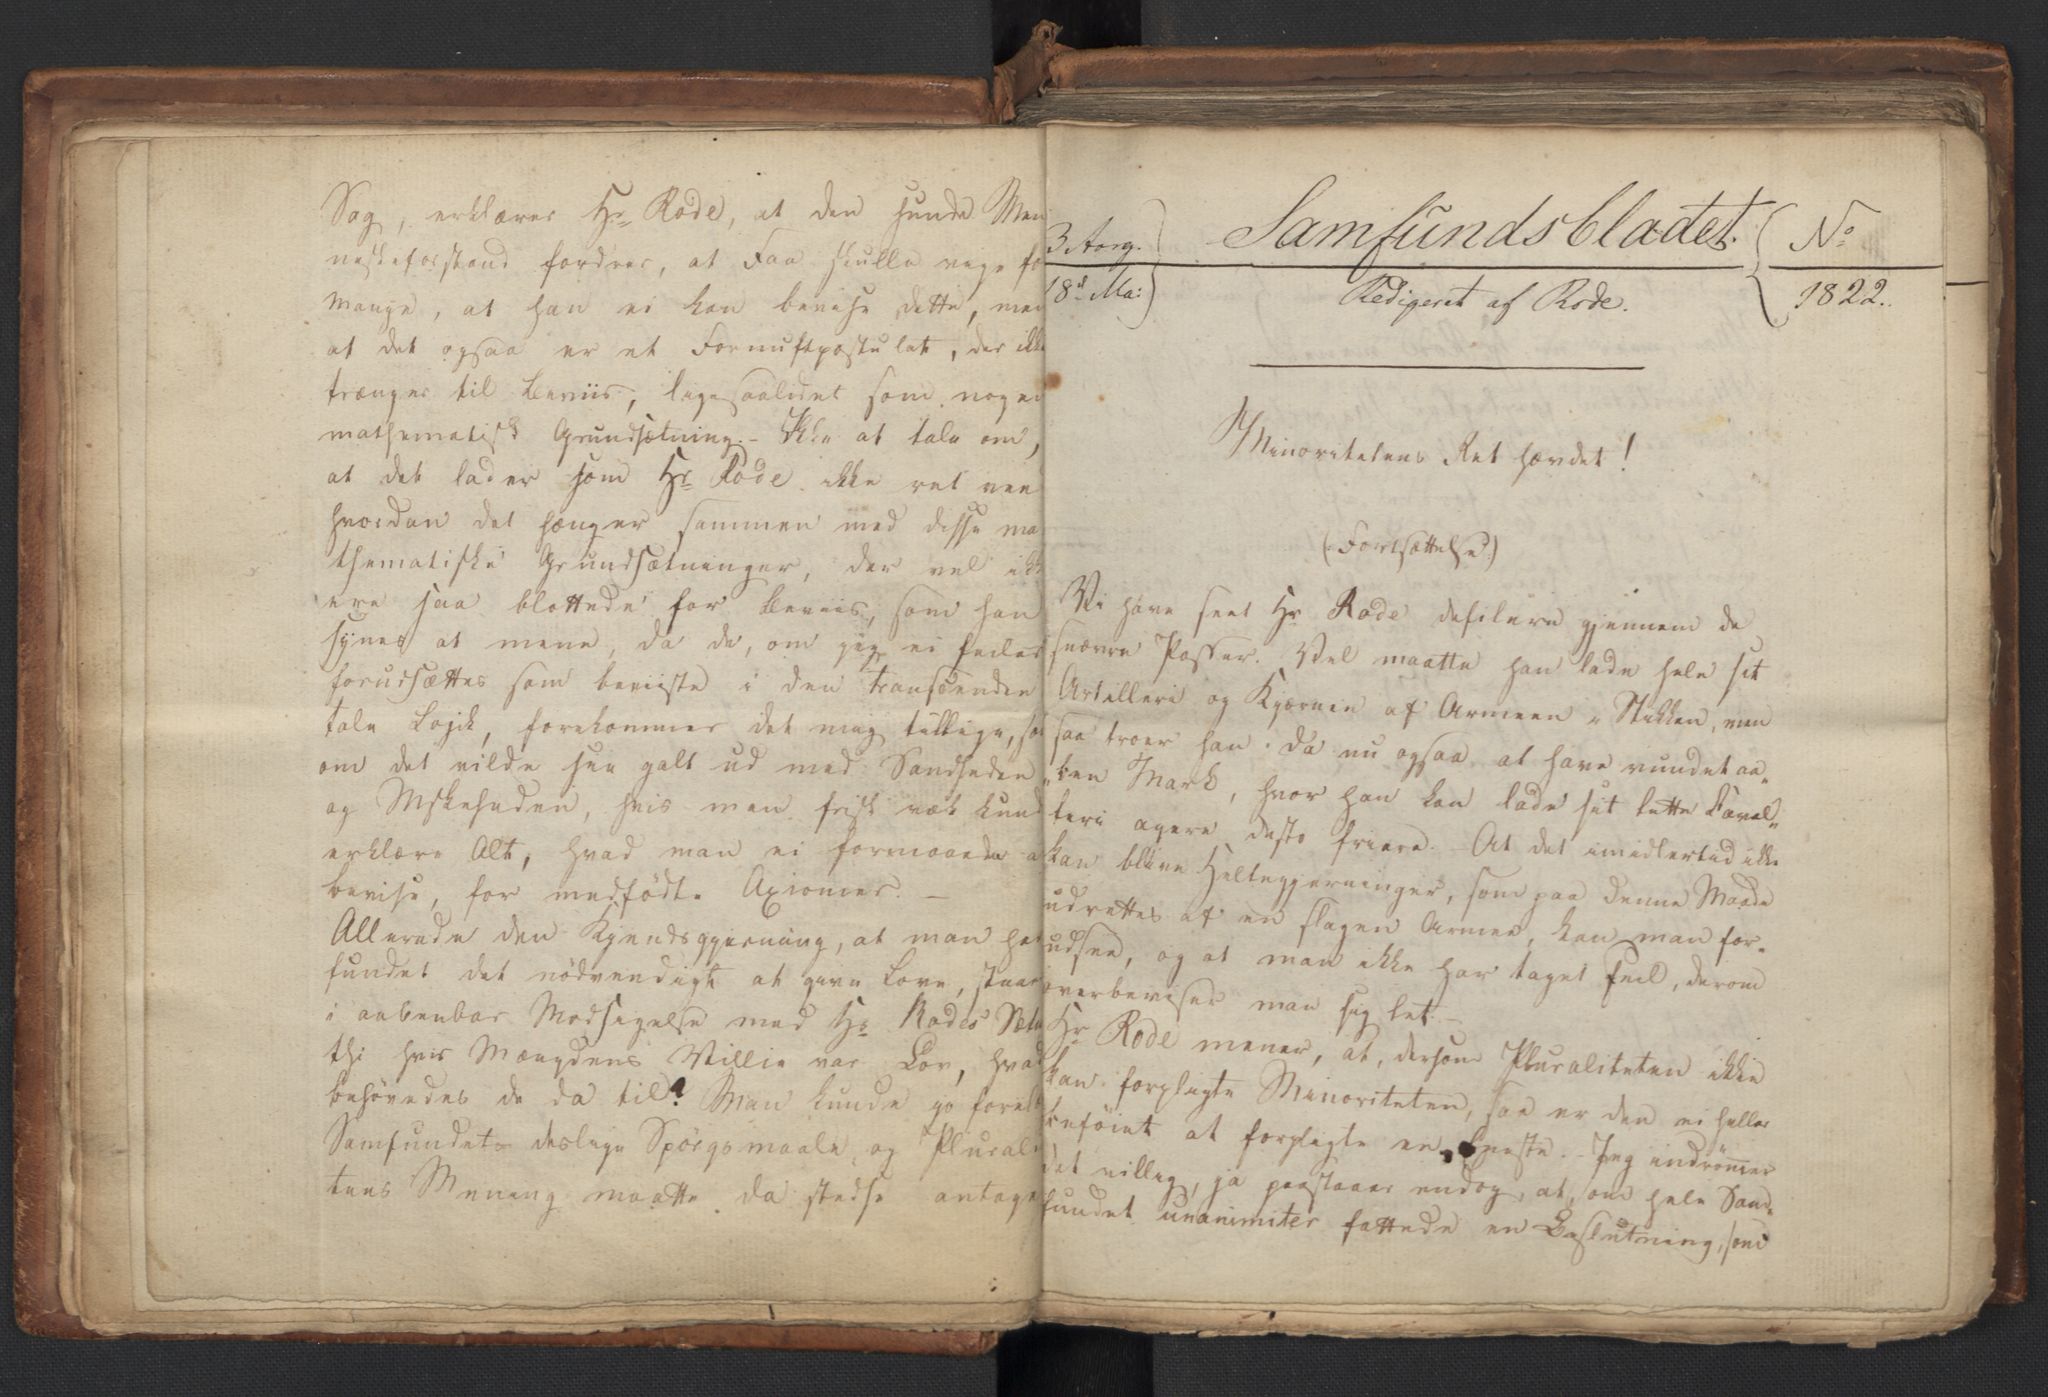 Sag, erklærer Hr Rode, at den sunde Men
neskeforstand fordrer, at Faa skulle vige fo
Mange, at han ei kan bevise dette, men
at det ogsaa er et Fornuftpostulat, der ikke
trænger til Beviis, ligesaalidet som nogen
mathematisk Grundsætning.- Ikke at tale om,
at det lader som Hr Rode ikke ret vee
hvordan det hænger sammen med disse ma
thematiske Grundsætninger, der vel ikk
ere saa blottede for Beviis, som han
synes at mene, da de, om jeg ei feiler
forudsættes som beviiste i den transcenden
tale Lojik, forekommer det mig tillige, so
om det vilde see galt ud med Sandheden
og Mskeheden, hvis man frisk væk kund
erklære Alt, hvad man ei formaaede a
bevise, for medfödte Axiomer. -
Allerede den Kjendsgjerning, at man har
fundet det nödvendigt at give Love, staar
i aabenbar Modsigelse med Hr Rodes Sætn
thi hvis Mængdens Villie var Lov, hvad
behövedes de da til? Man kunde jo forel
Samfundets deslige Spörgsmaale, og Plurali
tens Mening maatte da stedse antage
3 Aarg. Samfundsbladet. No
18d Mai Redigeret af Rode. 1822.
Minoritetens Ret hævdet!
(Fortsættelse.)
Vi have seet Hr Rode defilere gjennem de
snævre Passer. Vel maatte han lade hele sit
Artilleri og Kjærnen af Armeen i Stikken, men
saa troer han da nu ogsaa at have vundet aa-
ben Mark, hvor han kan lade sit lette Caval-
leri agere desto friere. - At det imidlertid ikke
kan blive Heltegjerninger, som paa denne Maade
udrettes af en slagen Armee, kan man for-
udsee, og at man ikke har taget Feil, derom
overbeviser man sig let. -
Hr Rode mener, at, dersom Pluraliteten ikke
kan forpligte Minoriteten, saa er den ei heller
beföiet at forpligte en Eneste. - Jeg indrömmer
det villig, ja paastaaer endog, at, om hele Sam-
fundet unanimiter fattede en Beslutning, som